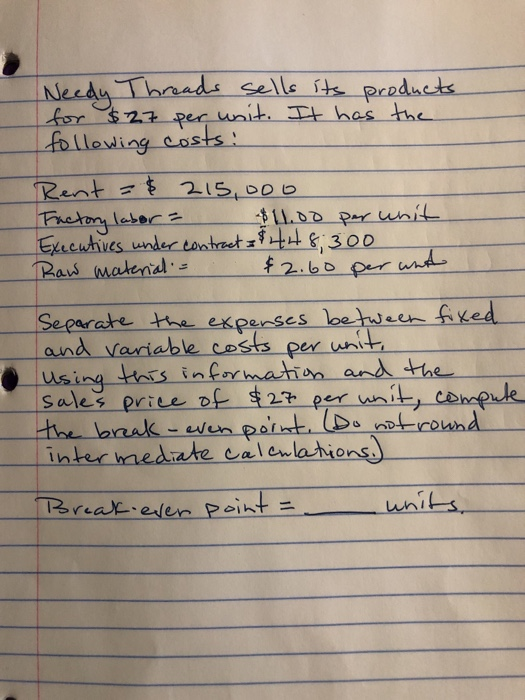 Needy Threads sells its products
for $27 per unit. It has the
following costs:
Rent = $ 215,000
Factory labor = $11.00 per unit
Executives under contract = $448,300
Raw material = $2.60 per unit
Separate the expenses between fixed
and variable costs per unit.
Using this information and the
sales price of $27 per unit, compute
the break-even point. (Do not round
intermediate calculations.)
Break-even point = ____ units.